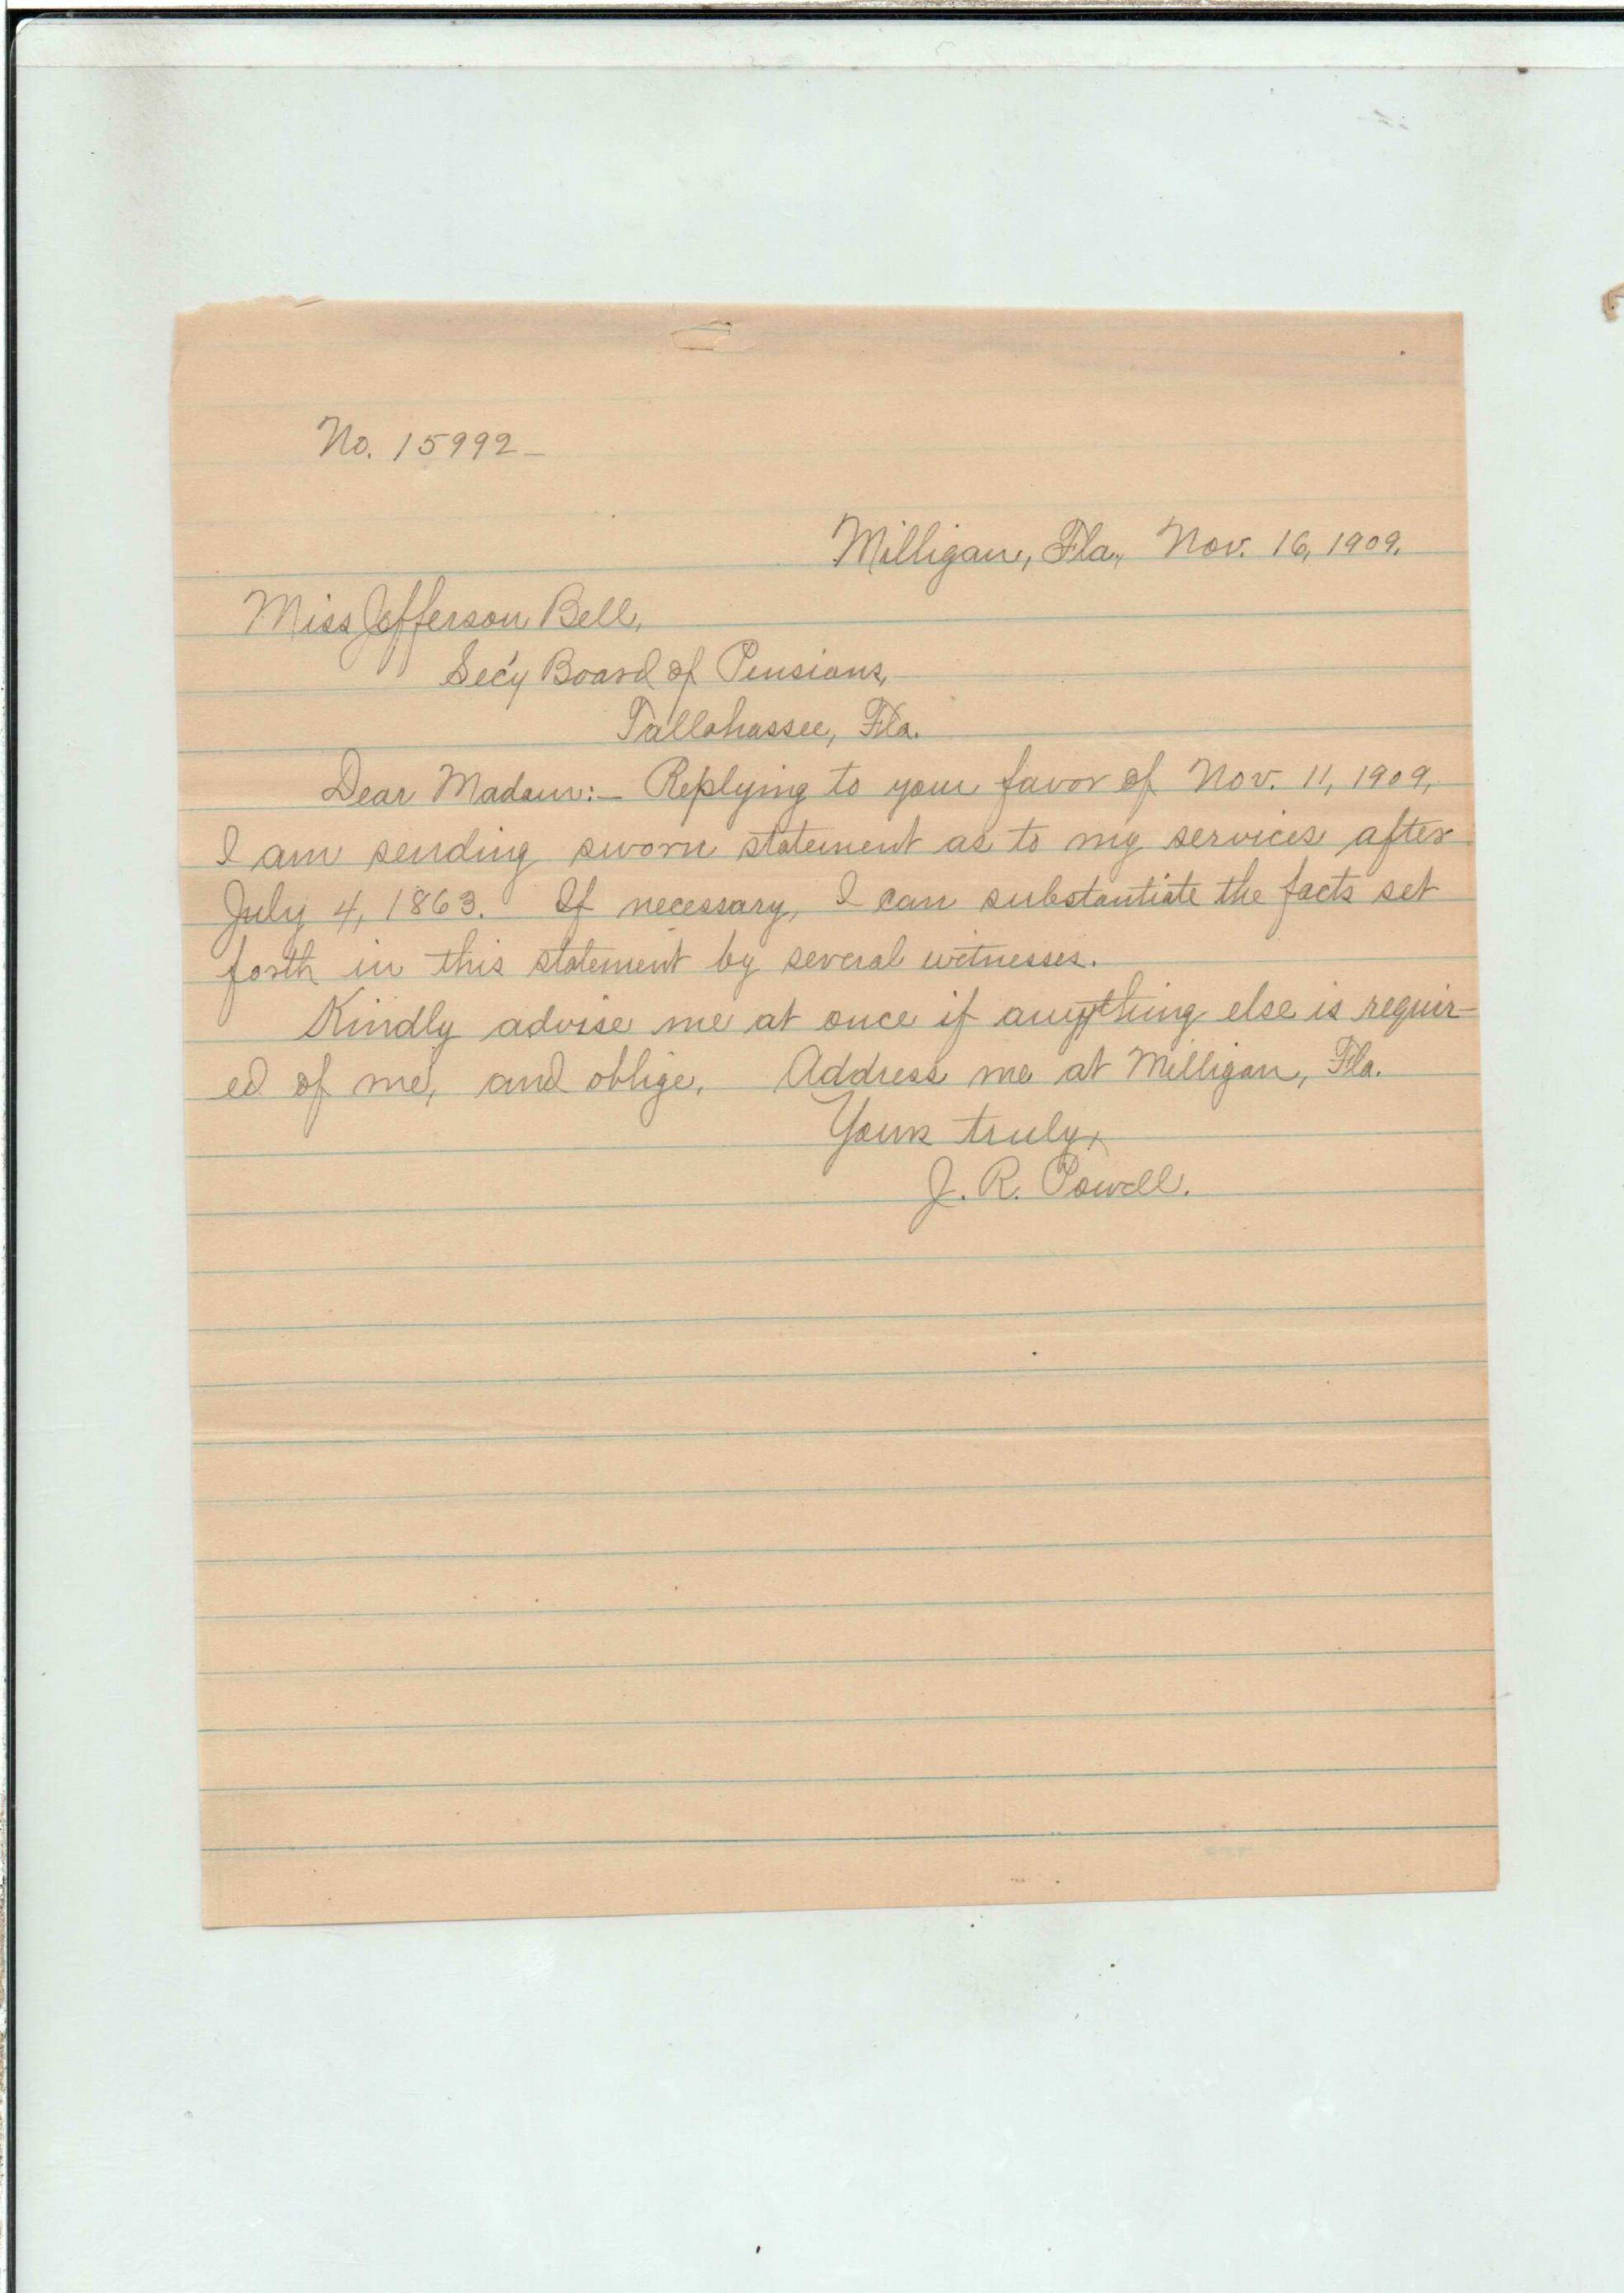 No. 15992—
Milligan, Fla., Nov. 16, 1909.
Miss Jefferson Bell,
Sec'y Board of Pensions,
Tallahassee, Fla.
Dear Madam:— Replying to your favor of Nov. 11, 1909,
I am sending sworn statement as to my services after
July 4, 1863. If necessary, I can substantiate the facts set
forth in this statement by several witnesses.
Kindly advise me at once if anything else is requir-
ed of me, and oblige. Address me at Milligan, Fla.
Yours truly,
J. R. Powell.